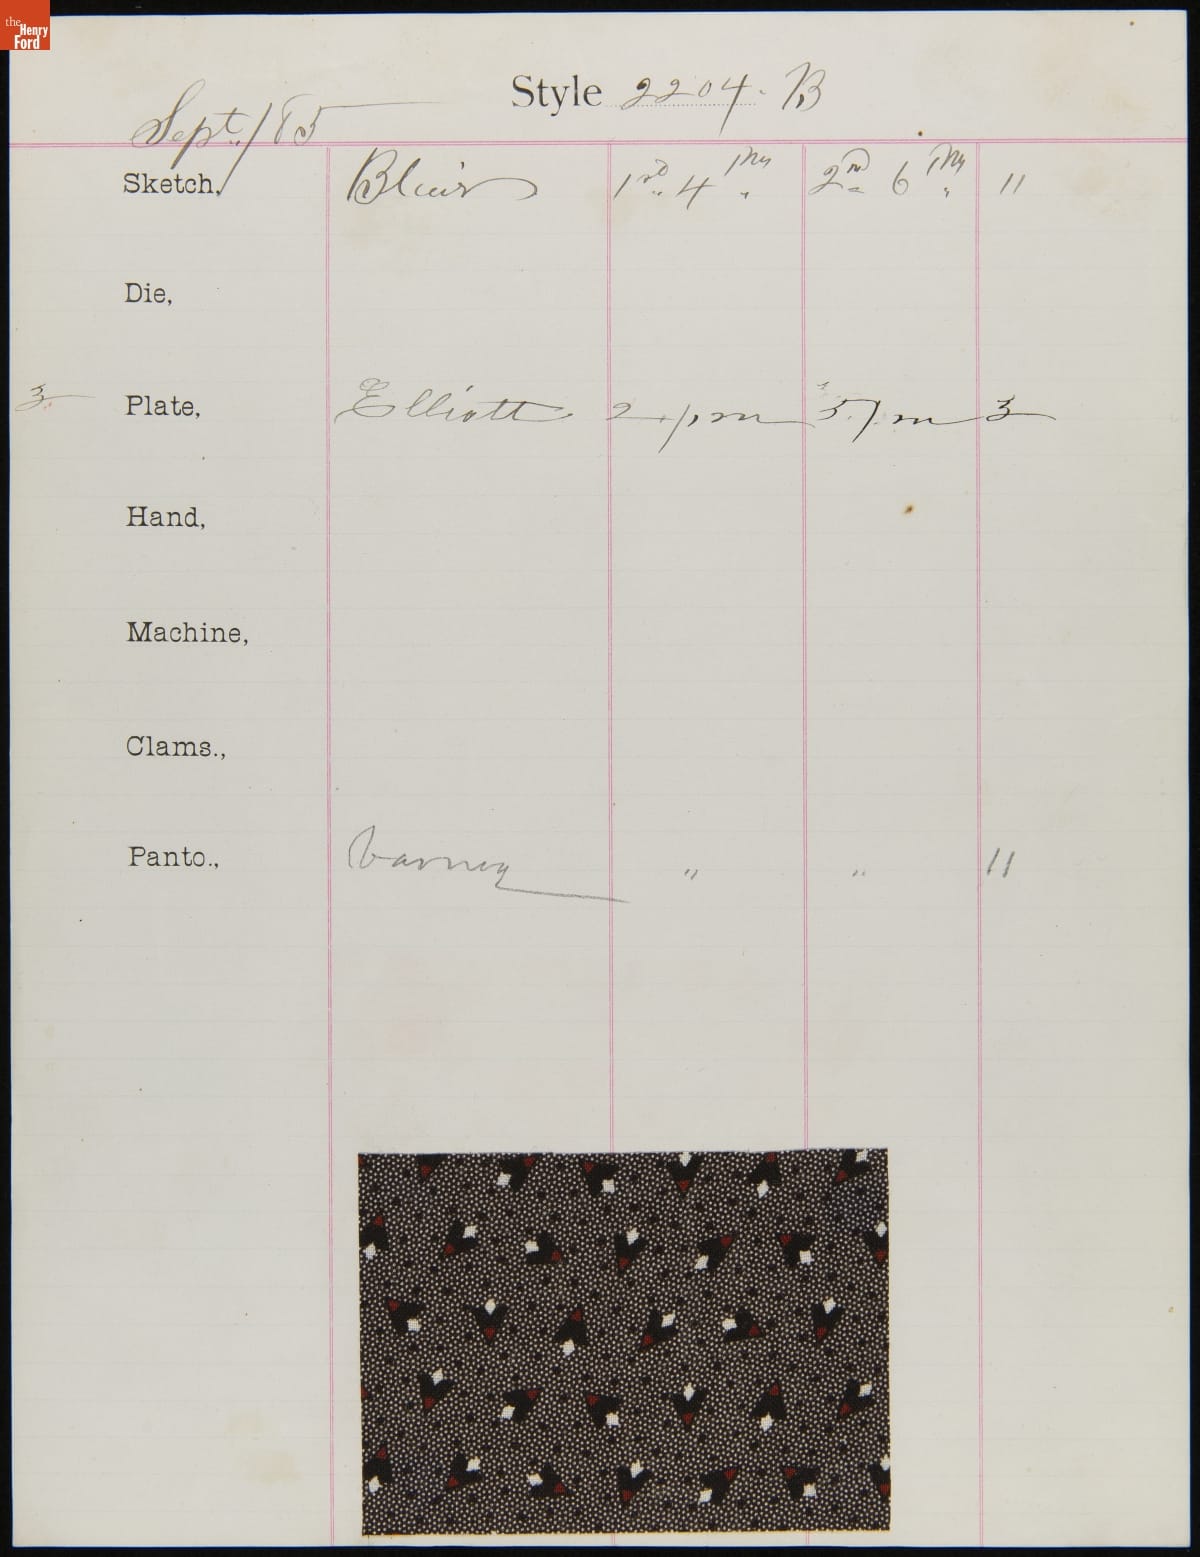 the
Henry
Ford
Style 2204. B
Sept. / 85
Sketch, Blair 1st 4 2nd 6 11
Die,
3 Plate, Elliott 2 pm 5 pm 3
Hand,
Machine,
Clams.,
Panto., Varney " " 11